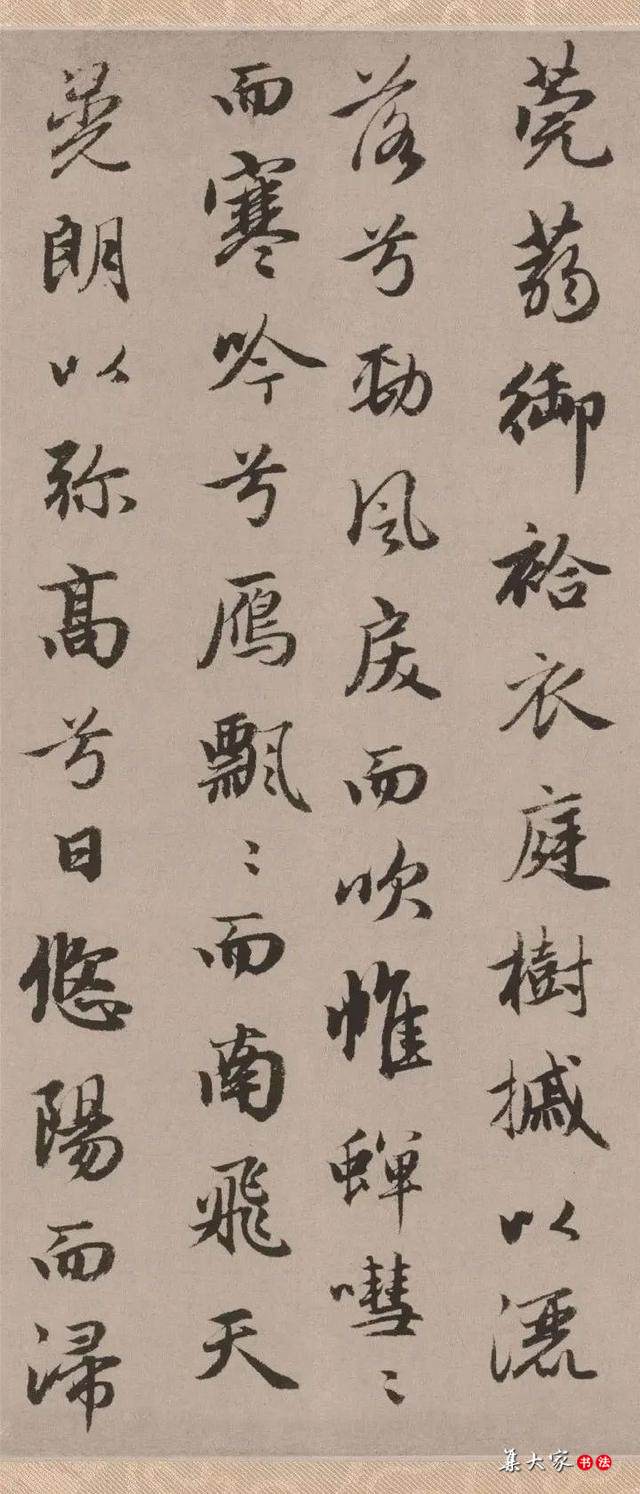 莞蒻御袷衣庭樹摵以灑
落兮勁風戾而吹帷蟬嘒〻
而寒吟兮雁飄〻而南飛天
晃朗以弥高兮日悠陽而㳍
集大家书法